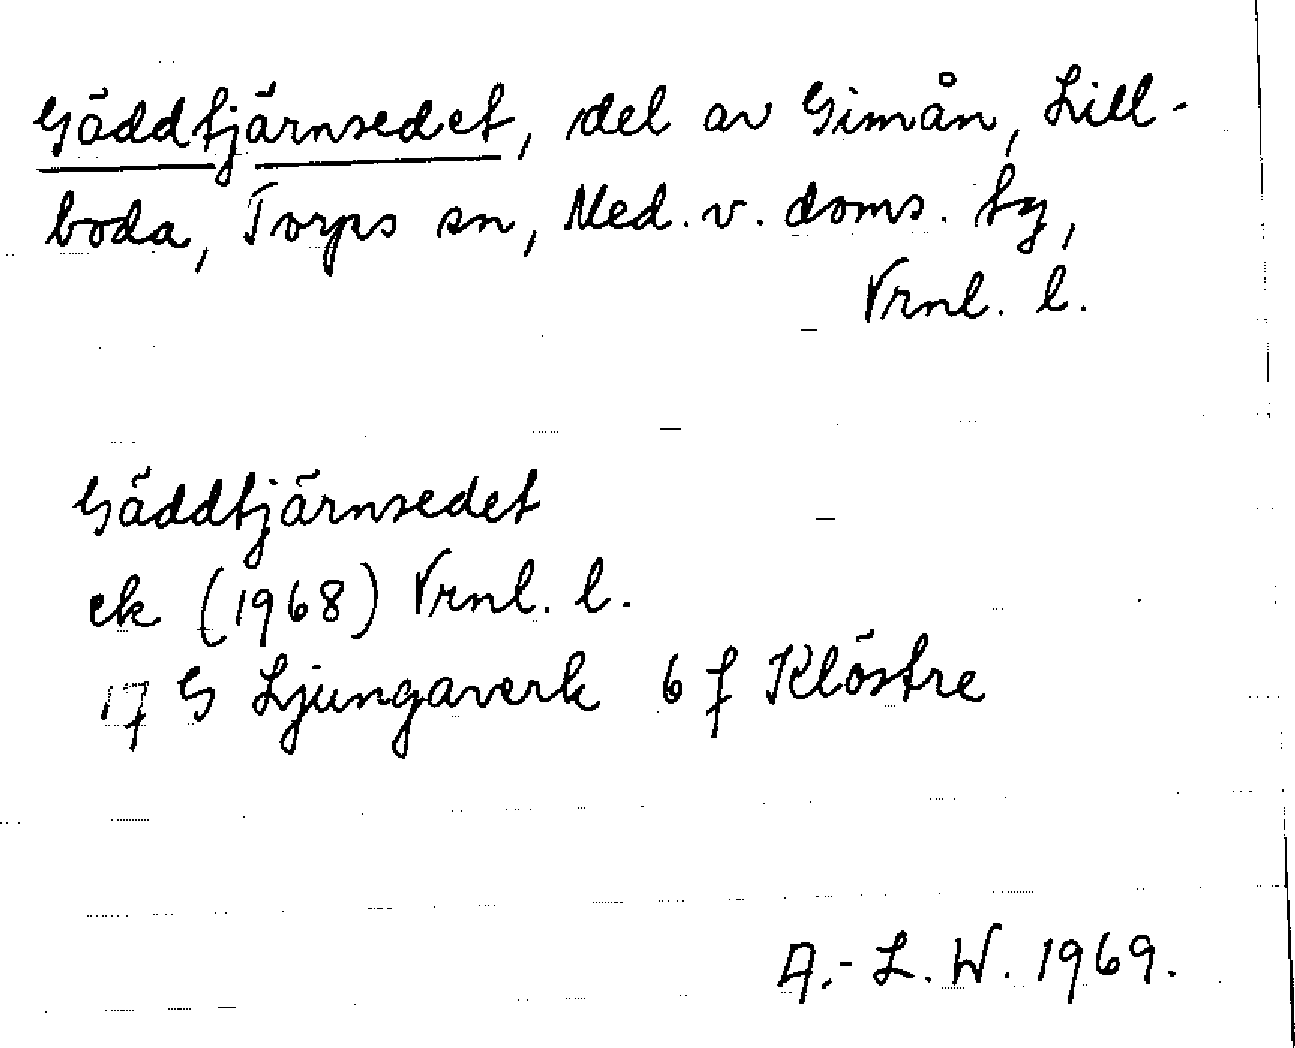 Gäddtjärnsedet, del av Gimån, Lill-
boda, Torps sn, Med. v. doms. tg,
Vrnl. l.
Gäddtjärnsedet
ek (1968) Vrnl. l.
17 G Ljungaverk 6 f Klöstre
A.-L. W. 1969.